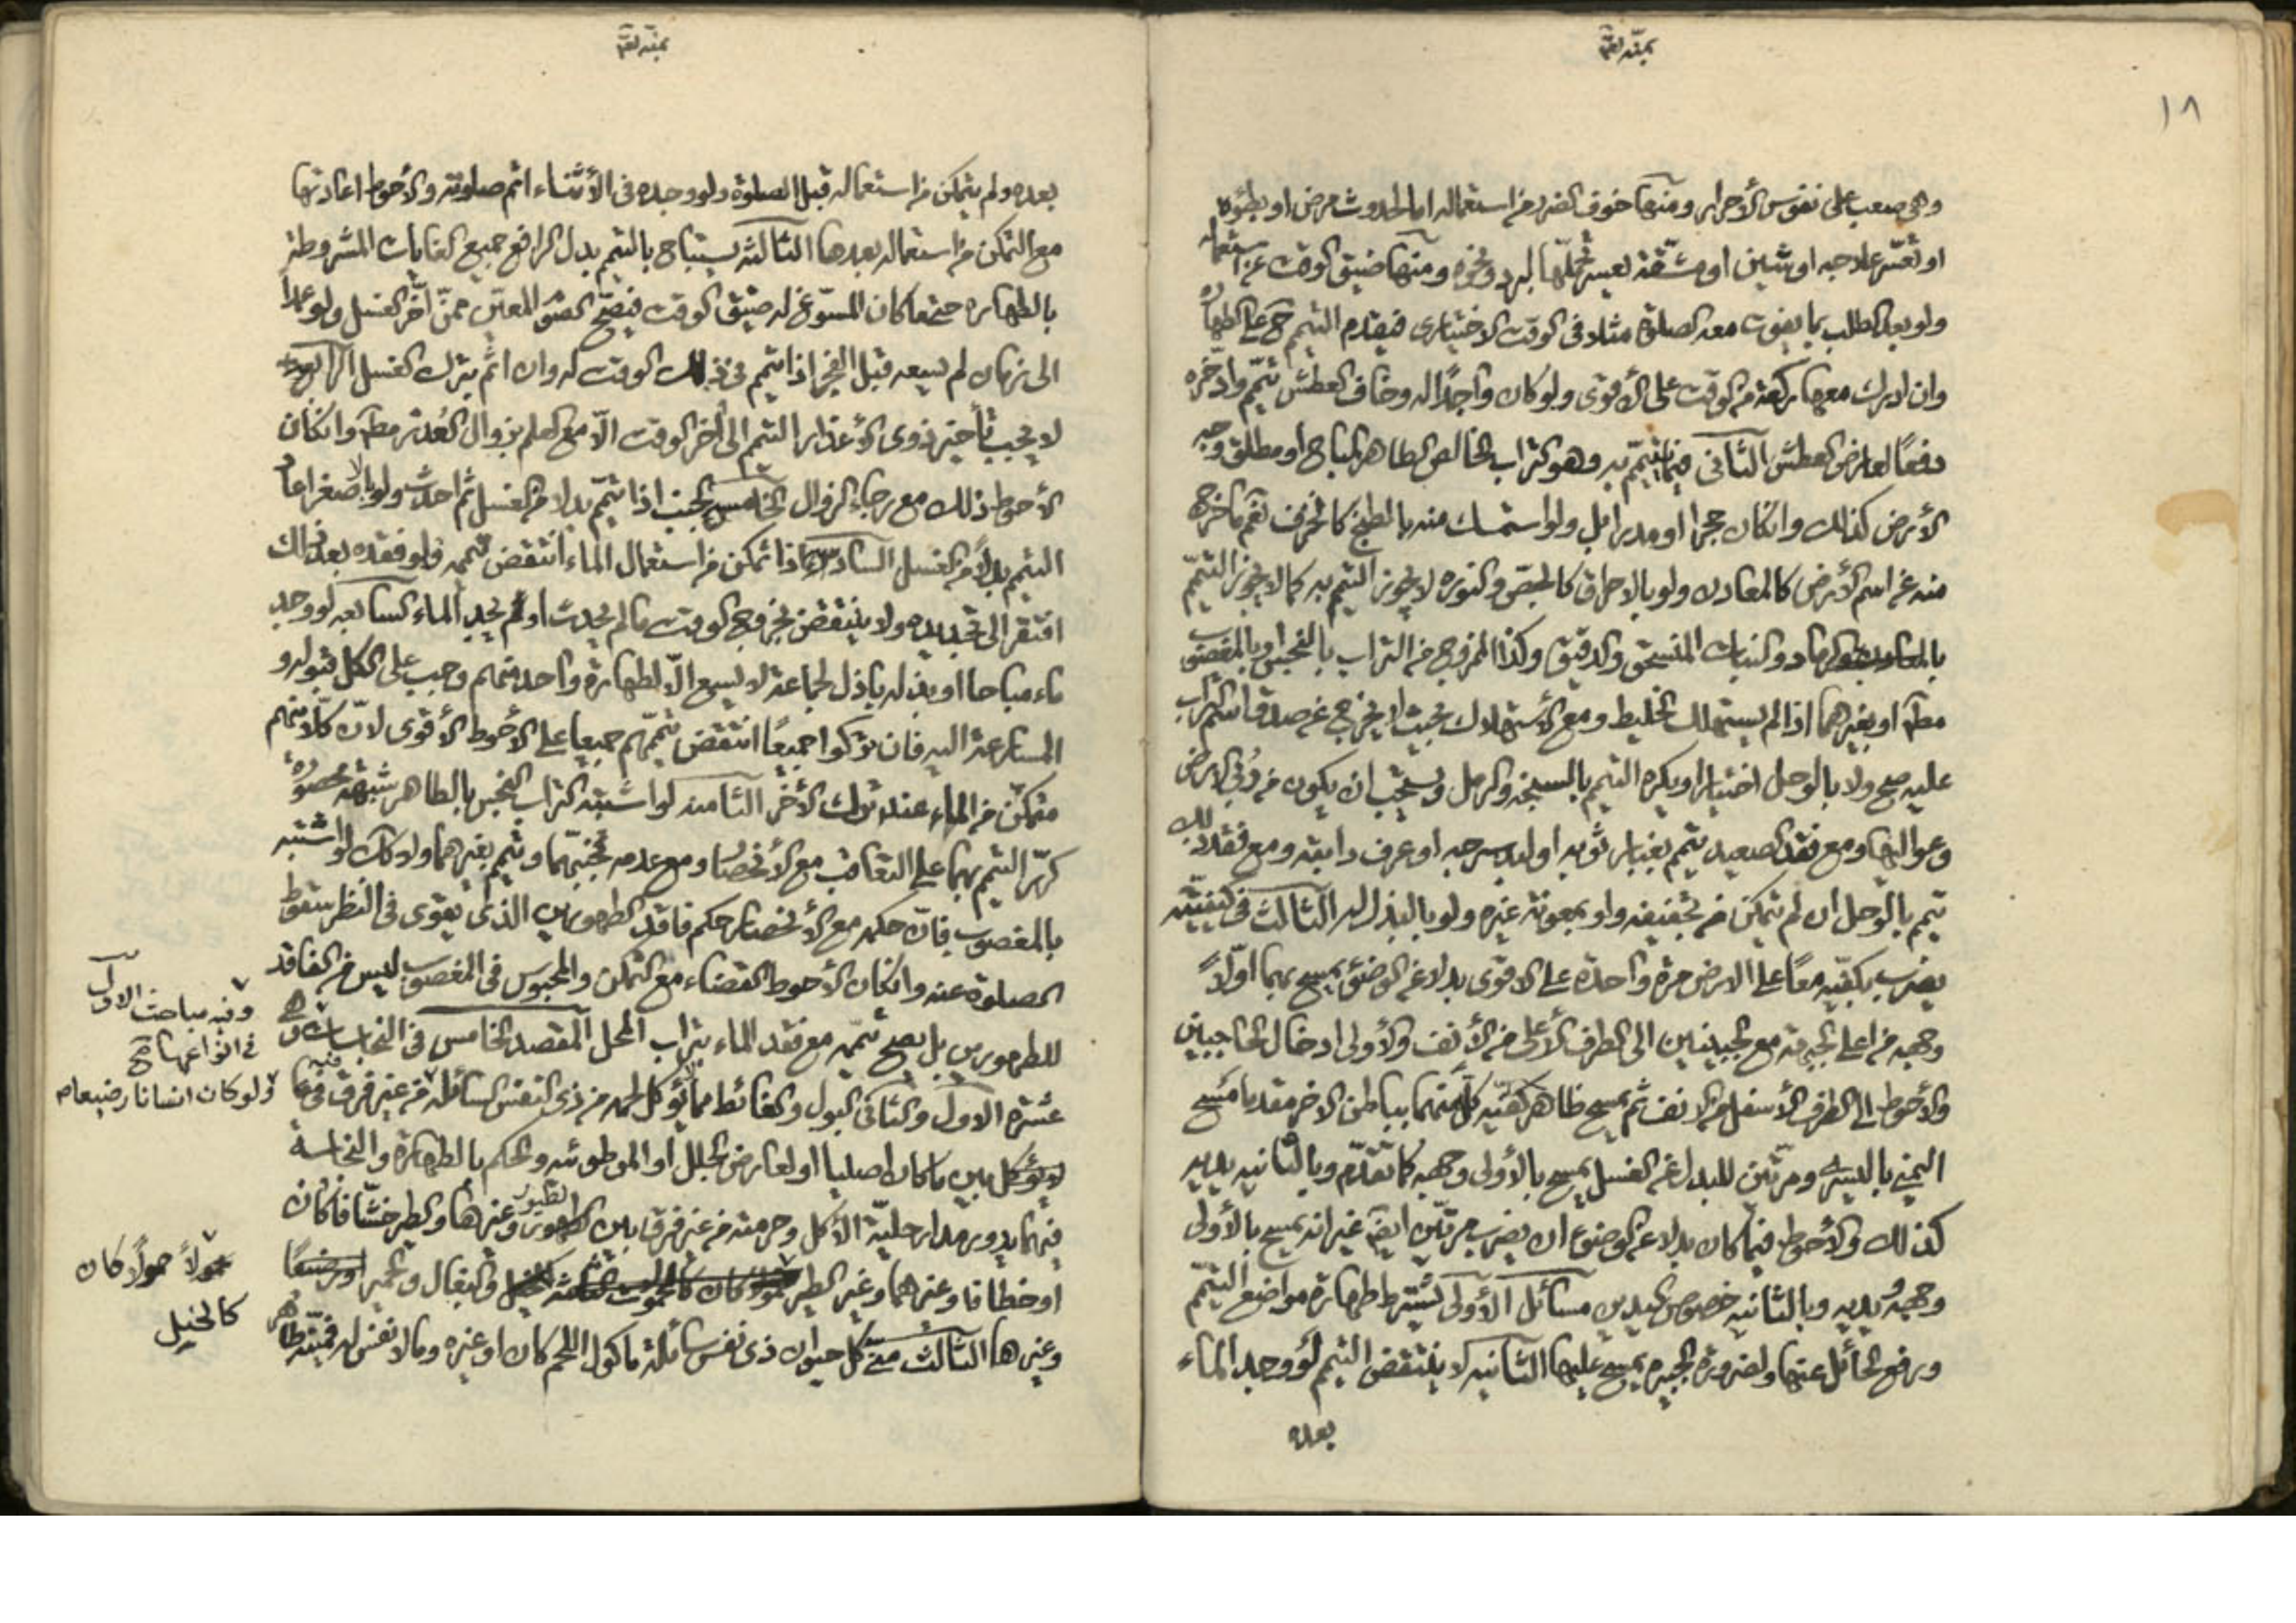 ١٨
وهى صعب على نفوس الأحرار ومنها خوف الضرر من استعماله اما لحدوث مرض او بطؤه
او تعسّر علاجه او شين او مشقّة يعسر تحمّلها لبرد ونحوه ومنها ضيق الوقت عن استعماله
ولو بعد الطلب بما يفوت معه الصلوة مثلا فى الوقت الاختيارى فيقدم التيمم ح على الطهارة
وان ادرك معها ركعة من الوقت على الأقوى ولو كان واجدًا له وخاف العطش تيمّم وادّخره
دفعًا لعارض العطش الثانى فيما يتيمّم به وهو التراب الخالص الطاهر المباح او مطلق وجه
الأرض كذلك وانكان حجرا او مدرا بل ولو استمسك منه بالطبخ كالخزف نعم ما خرج
منه عن اسم الأرض كالمعادن ولو بالاحراق كالجصّ والنوره لا يجوز التيمم به كما لا يجوز التيمّم
والرماد والنبات المنسحق والدقيق وكذا الممزوج من التراب بالنجس او بالمغصوب
مطم او بغيرهما اذا لم يستهلك الخليط ومع الأستهلاك بحيث لا يخرج عن صدق اسم التراب
عليه صح ولا بالوحل اختيارا ويكره التيمم بالسبخه والرمل ويستحب ان يكون من ربى الارض
وعواليها ومع فقد الصعيد يتيمم بغبار ثوبه او لبد سرجه او عرف دابته ومع فقد ذلك
يتيمم بالوحل ان لم يتمكن من تجفيفه ولو بمعونة غيره ولو بالبذل له الثالث فى كيفيّته
يضرب بكفّيه معًا على الارض مرة واحدة على الاقوى بدلا عن الوضؤ يمسح بهما اوّلاً
وجهه من اعلى الجبهة مع الجبينين الى الطرف الأعلى من الأنف والأولى ادخال الحاجبين
والأحوط الى الطرف الأسفل من الانف ثم يمسح ظاهر كفّيه كلّ منهما بباطن الاخر مقدما مسح
اليمنى باليسرى ومرّتين للبدل عن الغسل يمسح بالأولى وجهه كما تقدّم وبالثانيه يديه
كذلك والأحوط فيما كان بدلا عن الوضوء ان يضرب مرّتين ايضً غير انه يمسح بالأولى
وجهه ويديه وبالثانيه خصوص اليدين مسائل الأولى يشترط طهارة مواضع التيمّم
ورفع الحائل عنها ولضرورة الجبيره يمسح عليها الثانيه لا ينتقض التيمم لو وجد الماء
بعده
بعده ولم يتمكن من استعماله قبل الصلوة ولو وجده فى الأثناء اتم صلوته والأحوط اعادتها
مع التمكن من استعماله بعدها الثالثه يستباح بالتيمم بدل الرافع جميع الغايات المشروطة
بالطهارة حتى ما كان المسوّغ له ضيق الوقت فيصحّ الصوم المعيّن ممّن اخّر الغسل ولو عمدا
الى زمان لم يسعه قبل الفجر اذا تيمم فى ذلك الوقت له وان اثم بترك الغسل الرابعه
لا يجب تأخير ذوى الأعذار التيمم الى اخر الوقت الّا مع العلم بزوال العذر مطم وانكان
الأحوط ذلك مع رجاء الزوال الخامس الجنب اذا تيمّم بدلا من الغسل ثم احدث ولو بالاصغر اعاد
التيمم بدلاً من الغسل السادس اذا تمكن من استعمال الماء انتقض تيممه فلو فقده بعد ذلك
افتقر الى تجديده ولا ينتقض بخروج الوقت ما لم يحدث او لم يجد الماء السابعه لو وجد
ماء مباحا او بذله باذل لجماعة لا يسع الّا لطهارة واحد منهم وجب على الكل قبوله و
المسارعة اليه فان تركوا جميعًا انتقض تيمّمهم جميعا على الاحوط الأقوى لانّ كلًا منهم
متمكّن من الماء عند ترك الأخر الثامنه لو اشتبه التراب النجس بالطاهر شبهة محصوره
كرّر التيمم بهما على التعاقب مع الأنحصار ومع عدمه تجنبهما وتيمم بغيرهما ولا كك لو اشتبه
بالمغصوب فانّ حكمه مع الأنحصار حكم فاقد الطهورين الذى يقوى فى النظر سقوط
الصلوة عنه وانكان الأحوط القضاء مع التمكن والمحبوس فى المغصوب ليس من الفاقد
للطهورين بل يصح تيمّمه مع فقد الماء بتراب المحل المقصد الخامس فى النجاسات وهى
عشرة الاول والثانى البول والغائط مما لا يؤكل لحمه من ذى النفس السائله من غير فرق فيما
لا يؤكل بين ما كان اصليا او لعارض كجلل او الموطوئه والحكم بالطهارة والنجاسة
فيهما يدور مدار حلّية الاكل وحرمته من غير فرق بين الطيور وغيرها والطير خشّافا كان
او خطافا وغيرهما وغير الطير والبغال والحمير
وغيرها الثالث منىّ كل حيوان ذى نفس سائلة ماكول اللحم كان او غيره وما لا نفس له فميتته طاهر
وفيه مباحث الاول
فى انواعها صح
ولو كان انسانا رضيعا
حمولاً كان
كالخيل